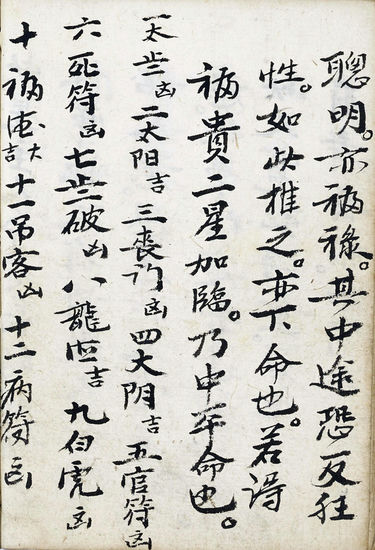 聰明。亦福祿。其中途恐反狂
性。如此推之。亦下命也。若得
福貴二星加臨。乃中平命也。
一太歲凶二太阳吉三喪门凶四大阴吉五官符凶
六死符凶七歲破凶八龍德吉九白虎凶
十福德大吉十一吊客凶十二病符凶